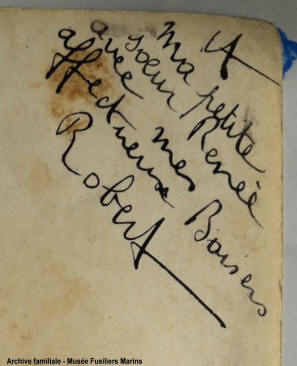 A
Ma petite
sœur Renée
avec mes
affectueux Baisers
Robert
Archive familiale - Musée Fusiliers Marins